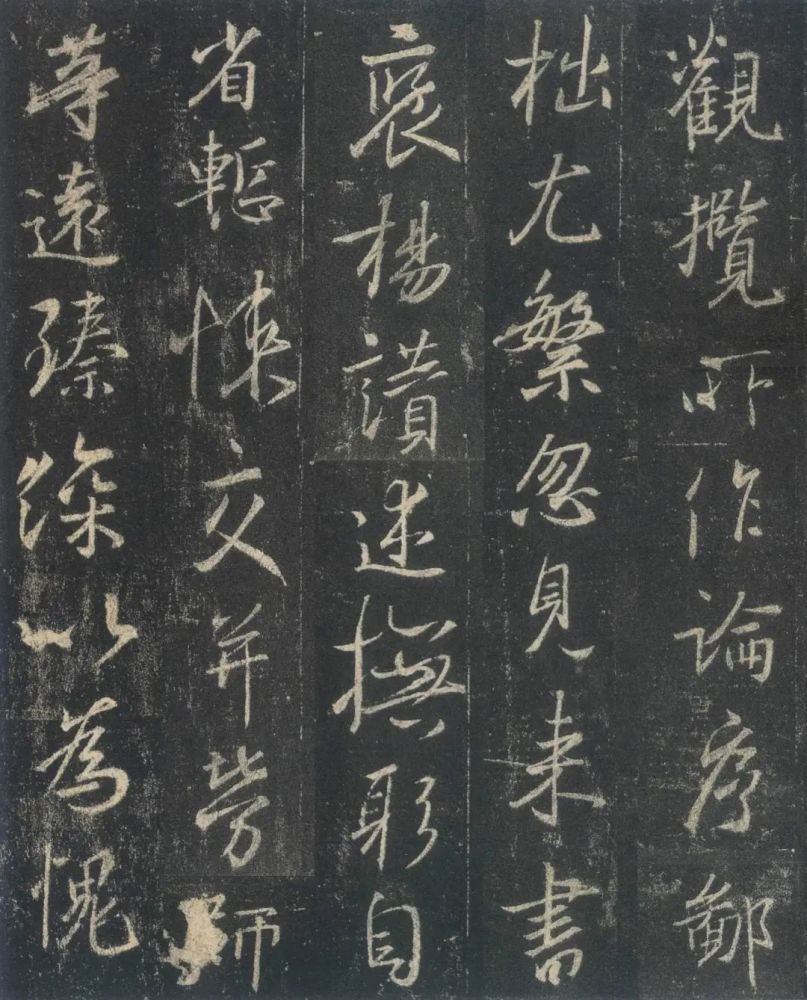 觀攬所作論序鄙
拙尤繁忽見來書
褒楊讃述撫躬自
省慙悚交并勞師
等遠臻深以為愧